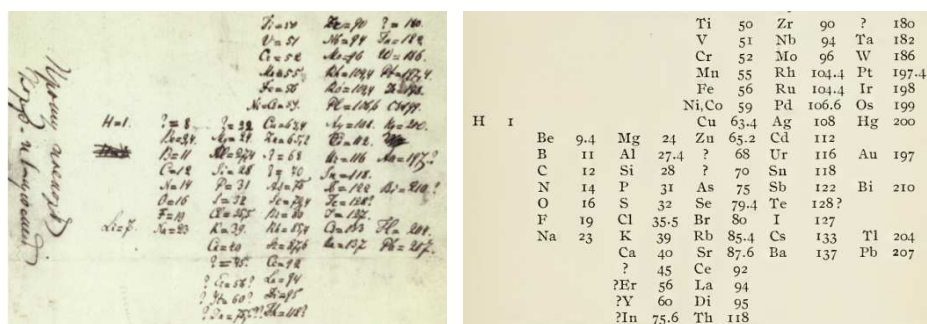 Ti=50 Zr=90 ?=180.
V=51 Nb=94 Ta=182.
Cr=52 Mo=96 W=186.
Mn=55 Rh=104,4 Pt=197,4
Fe=56 Ru=104,4 Ir=198.
Ni=Co=59 Pl=106,6 Os=199.
H=1. ?=8 ?=22 Cu=63,4 Ag=108 Hg=200.
Be=9,4 Mg=24 Zn=65,2 Cd=112
B=11 Al=27,4 ?=68 Ur=116 Au=197?
C=12 Si=28 ?=70 Sn=118
N=14 P=31 As=75 Sb=122 Bi=210?
O=16 S=32 Se=79,4 Te=128?
F=19 Cl=35,5 Br=80 I=127
Li=7. Na=23 K=39 Rb=85,4 Cs=133 Tl=204
Ca=40 Sr=87,6 Ba=137 Pb=207.
?=45. Ce=92
?Er=56? La=94
?Yt=60? Di=95
?In=75,6? Th=118?
Ti 50 Zr 90 ? 180
V 51 Nb 94 Ta 182
Cr 52 Mo 96 W 186
Mn 55 Rh 104.4 Pt 197.4
Fe 56 Ru 104.4 Ir 198
Ni,Co 59 Pd 106.6 Os 199
H 1 Cu 63.4 Ag 108 Hg 200
Be 9.4 Mg 24 Zn 65.2 Cd 112
B 11 Al 27.4 ? 68 Ur 116 Au 197
C 12 Si 28 ? 70 Sn 118
N 14 P 31 As 75 Sb 122 Bi 210
O 16 S 32 Se 79.4 Te 128?
F 19 Cl 35.5 Br 80 I 127
Na 23 K 39 Rb 85.4 Cs 133 Tl 204
Ca 40 Sr 87.6 Ba 137 Pb 207
? 45 Ce 92
?Er 56 La 94
?Y 60 Di 95
?In 75.6 Th 118